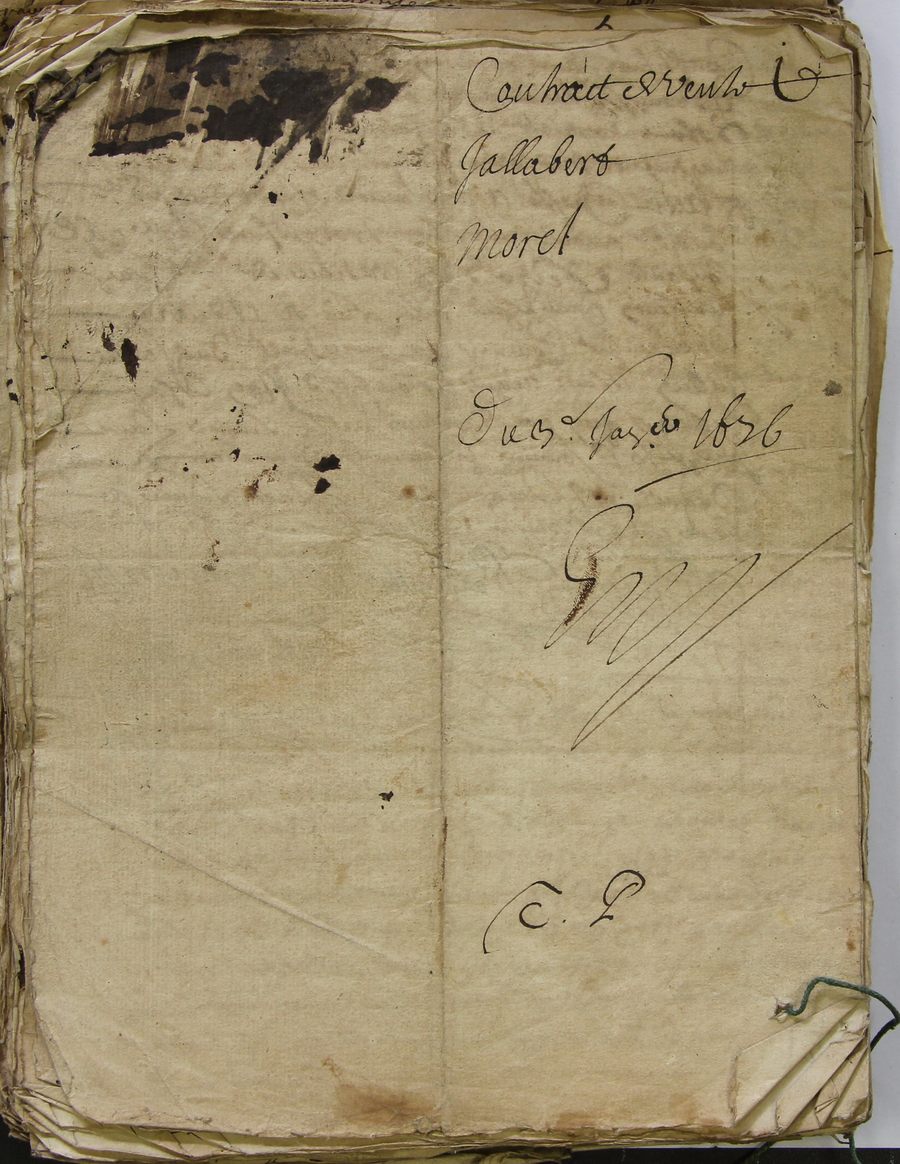 Contract de vente
Jallabert
Moret
Du 3e Janer 1636
C. P